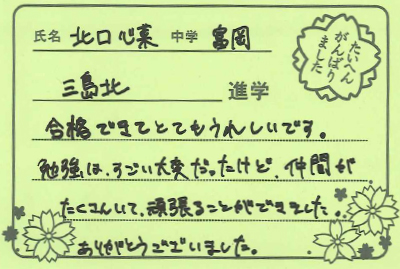 氏名 北口心菜 中学 富岡
たいへん
がんばり
ました
三島北 進学
合格できてとてもうれしいです。
勉強は、すごい大変だったけど、仲間が
たくさんいて、頑張ることができました。
ありがとうございました。